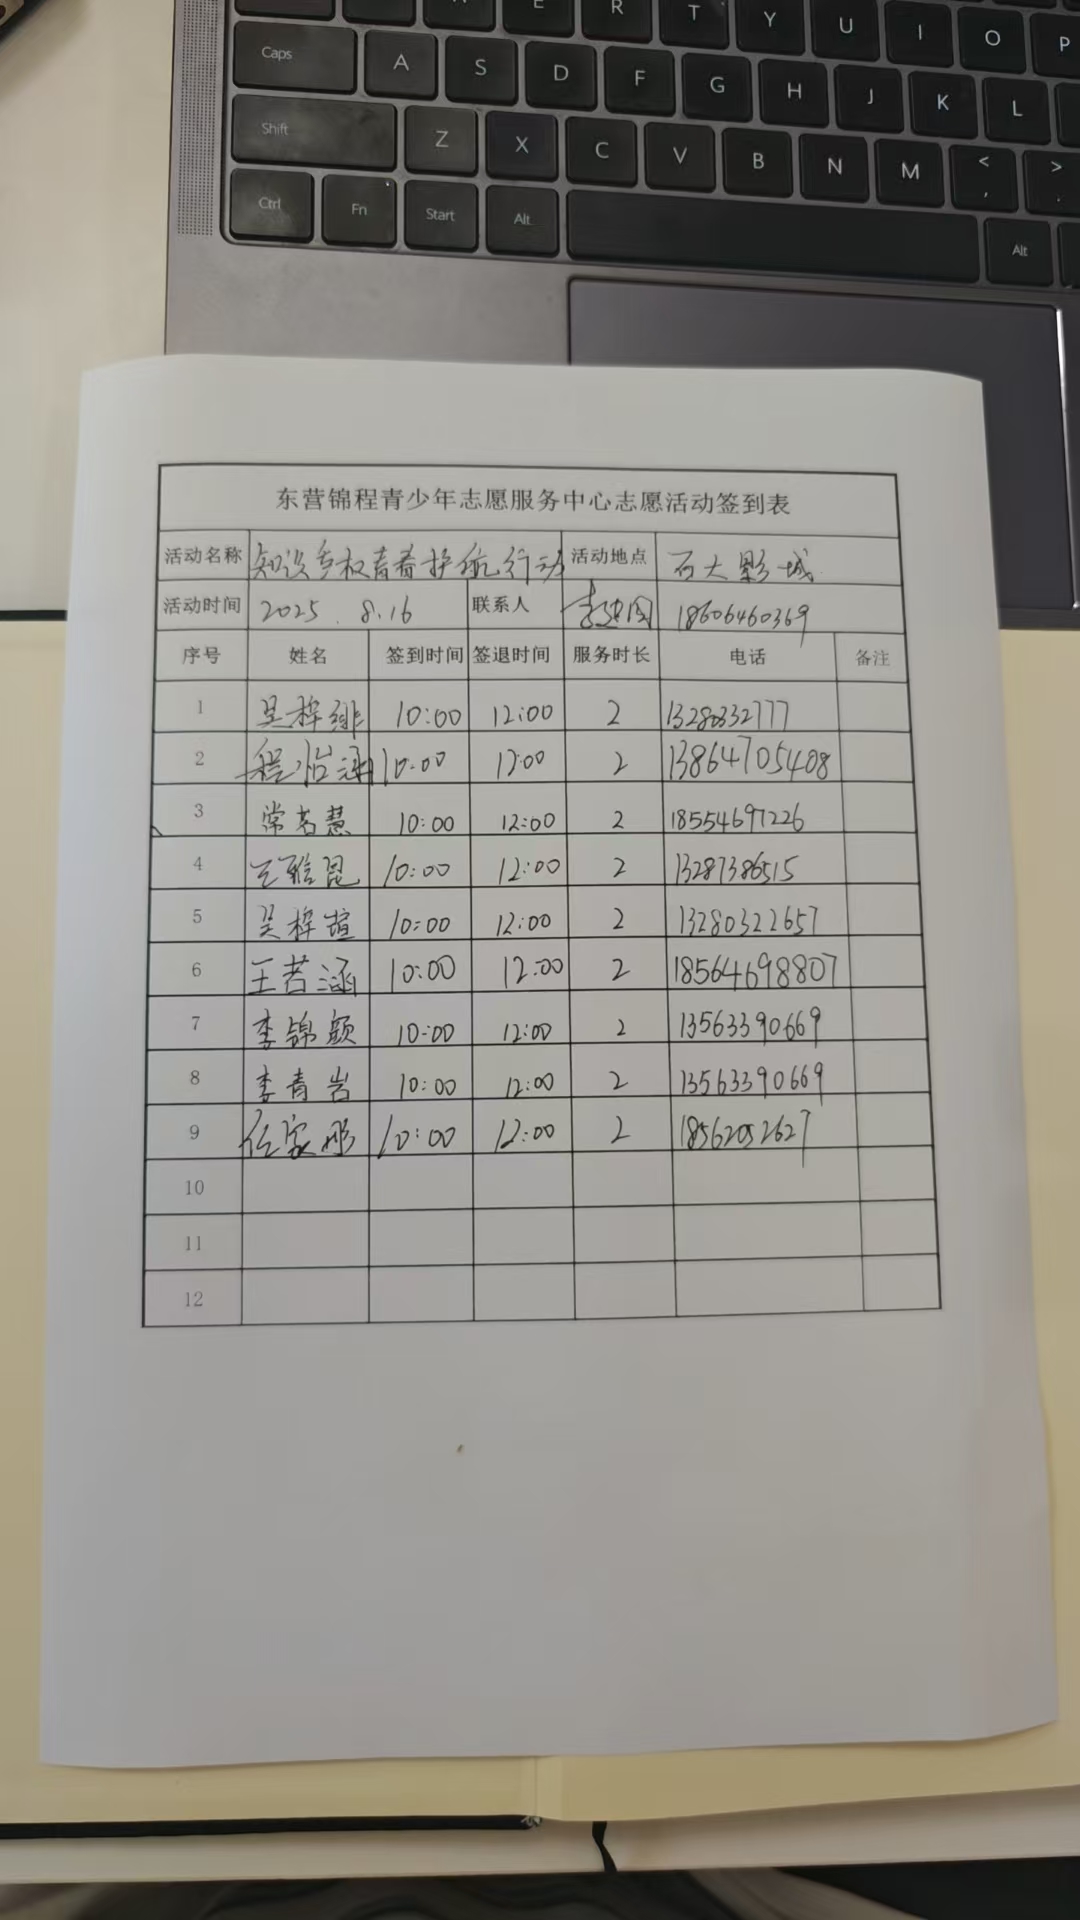 E R T Y U I O P
Caps A S D F G H J K L
Shift Z X C V B N M < , > .
Ctrl Fn Start Alt Alt
东营锦程青少年志愿服务中心志愿活动签到表
活动名称 知识产权青春护航行动 活动地点 石大影城
活动时间 2025.8.16 联系人 李建国 18606460369
序号 姓名 签到时间 签退时间 服务时长 电话 备注
1 吴梓绯 10:00 12:00 2 13280332777
2 程怡涵 10:00 12:00 2 13864705408
3 常茗慧 10:00 12:00 2 18554697226
4 王雅昆 10:00 12:00 2 13287386515
5 吴梓萱 10:00 12:00 2 13280322657
6 王若涵 10:00 12:00 2 18564698807
7 李锦颐 10:00 12:00 2 13563390669
8 李青岩 10:00 12:00 2 13563390669
9 任家彤 10:00 12:00 2 18562052627
10
11
12